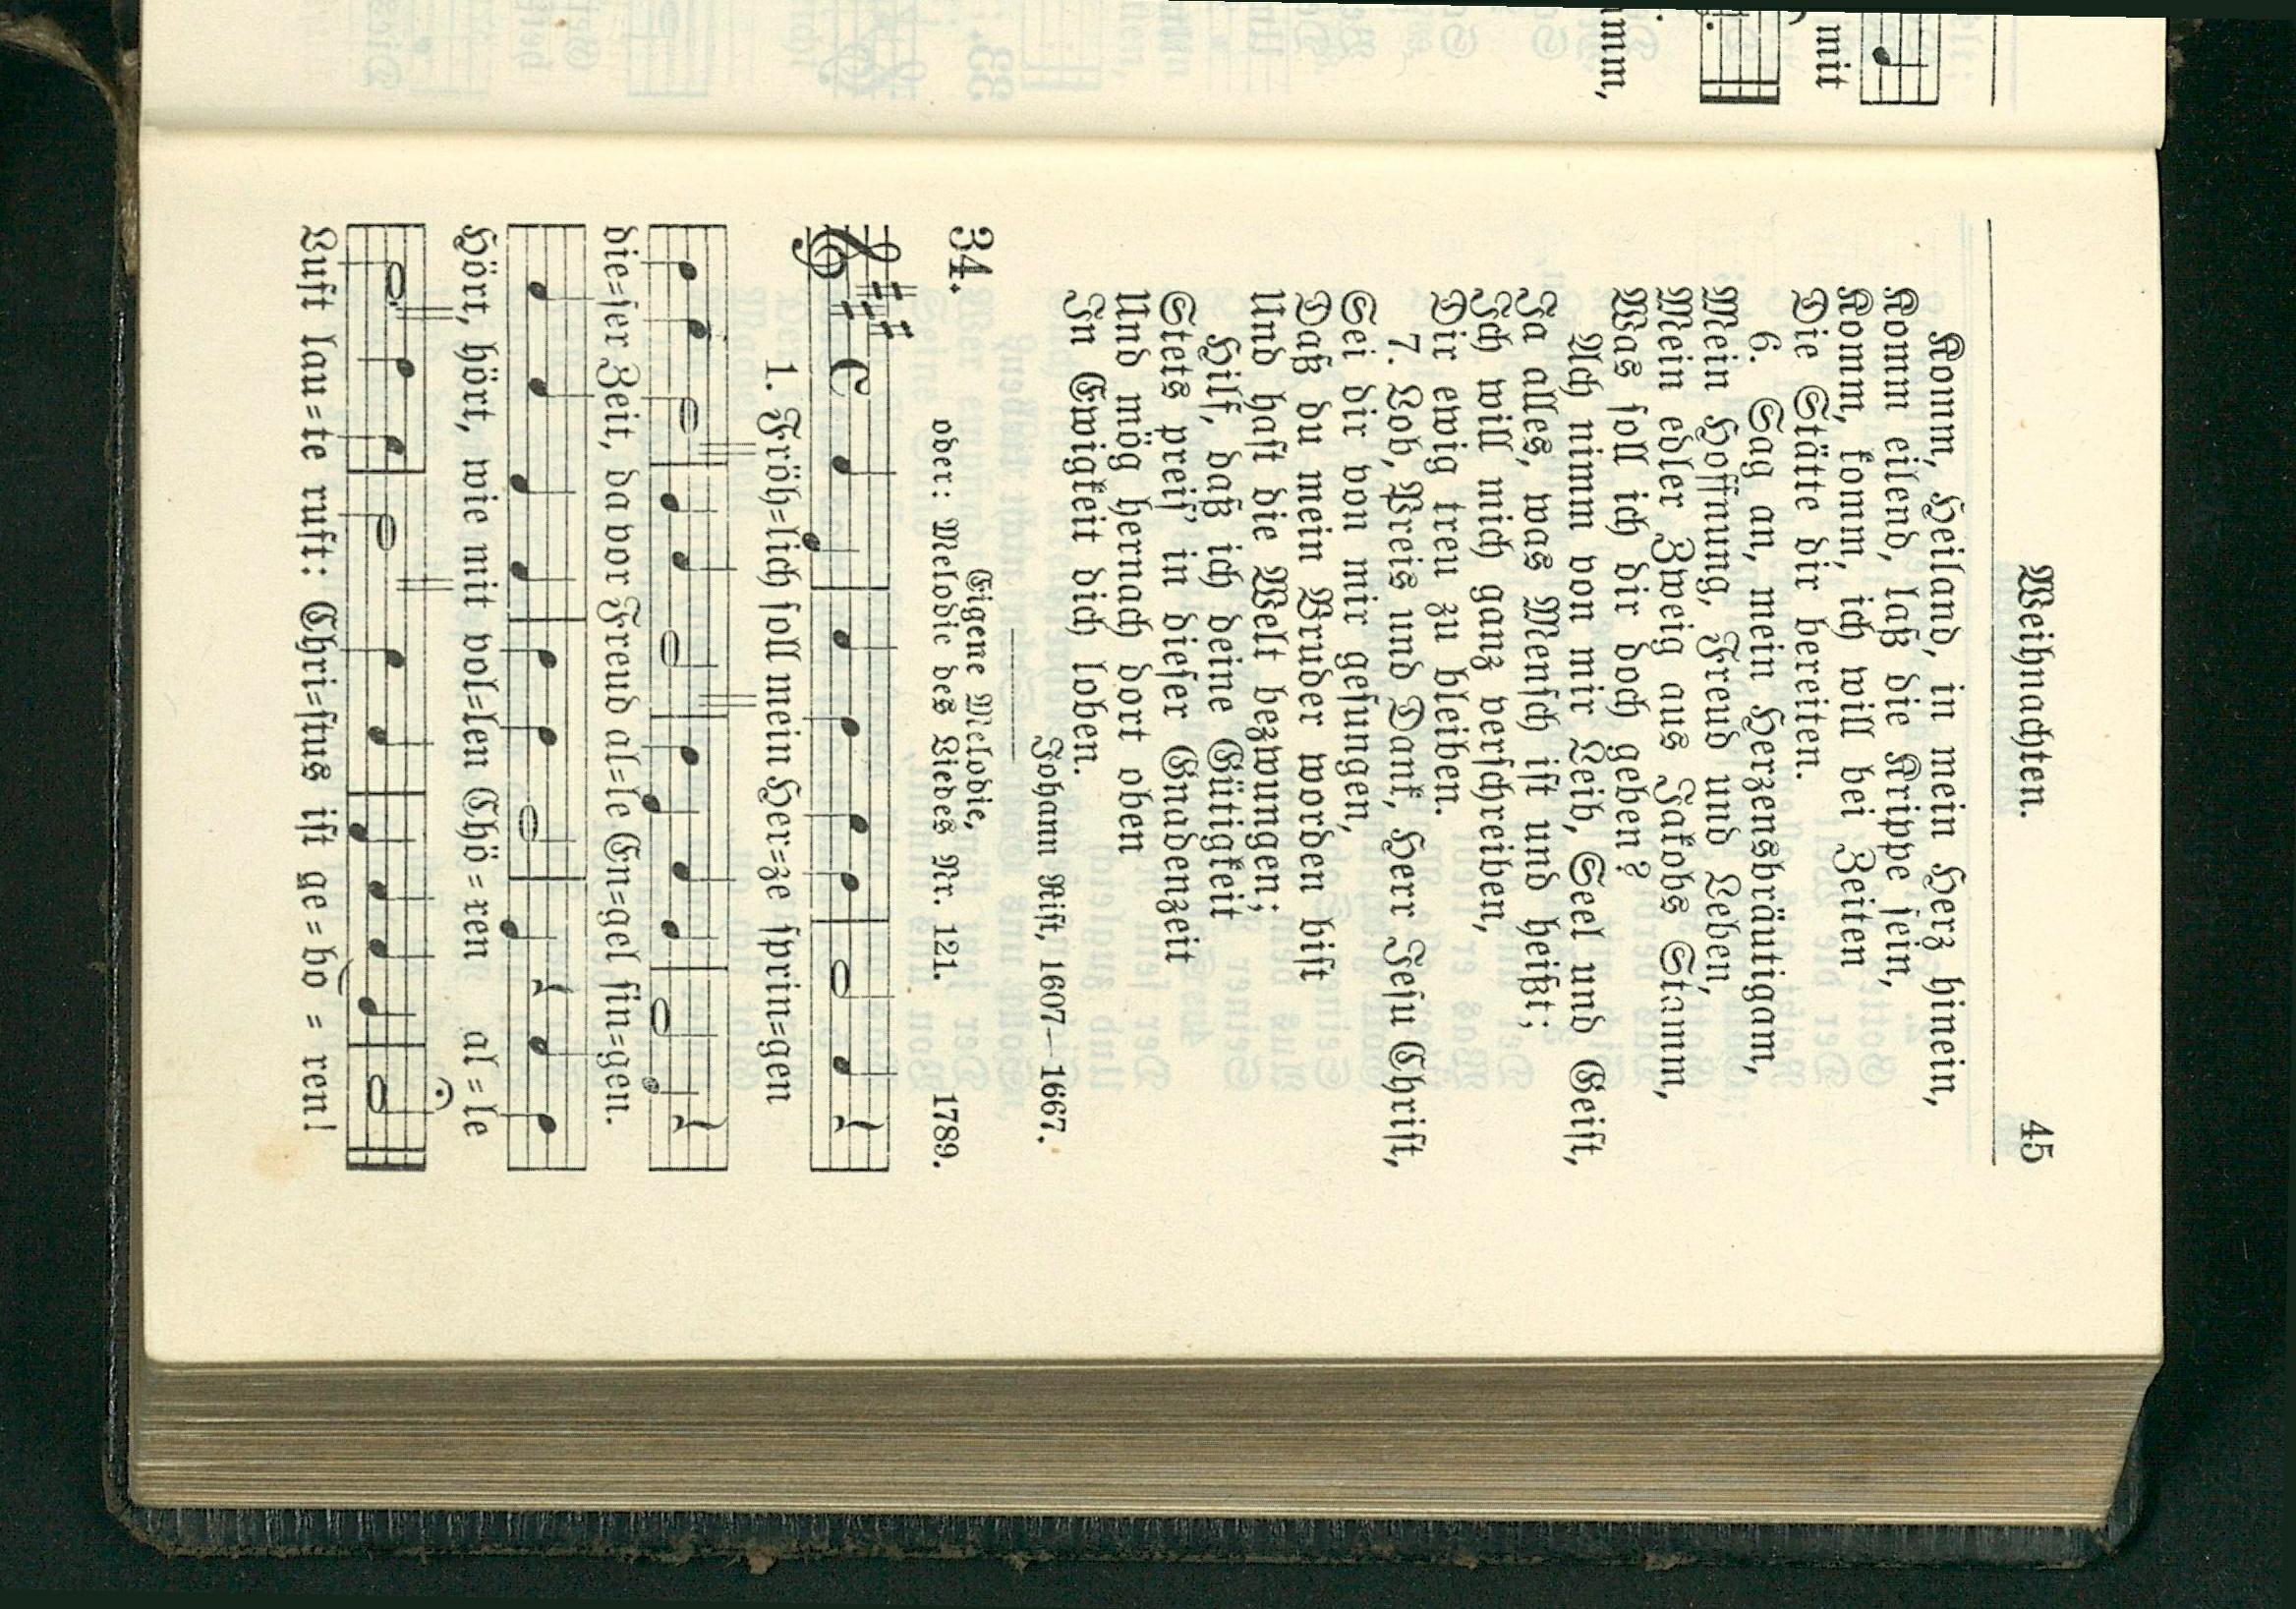 Weihnachten. 45
Komm, Heiland, in mein Herz hinein,
Komm eilend, laß die Krippe sein,
Komm, komm, ich will bei Zeiten
Die Stätte dir bereiten.
6. Sag an, mein Herzensbräutigam,
Mein Hoffnung, Freud und Leben,
Mein edler Zweig aus Jakobs Stamm,
Was soll ich dir doch geben?
Ach nimm von mir Leib, Seel und Geist,
Ja alles, was Mensch ist und heißt;
Ich will mich ganz verschreiben,
Dir ewig treu zu bleiben.
7. Lob, Preis und Dank, Herr Jesu Christ,
Sei dir von mir gesungen,
Daß du mein Bruder worden bist
Und hast die Welt bezwungen;
Hilf, daß ich deine Gütigkeit
Stets preis' in dieser Gnadenzeit
Und mög hernach dort oben
In Ewigkeit dich loben.
Johann Rist, 1607—1667.
34.
Eigene Melodie,
oder: Melodie des Liedes Nr. 121. 1789.
1. Fröh=lich soll mein Her=ze sprin=gen
die=ser Zeit, da vor Freud al=le En=gel sin=gen.
Hört, hört, wie mit vol=len Chö=ren al=le
Luft lau=te ruft: Chri=stus ist ge=bo=ren!
mit